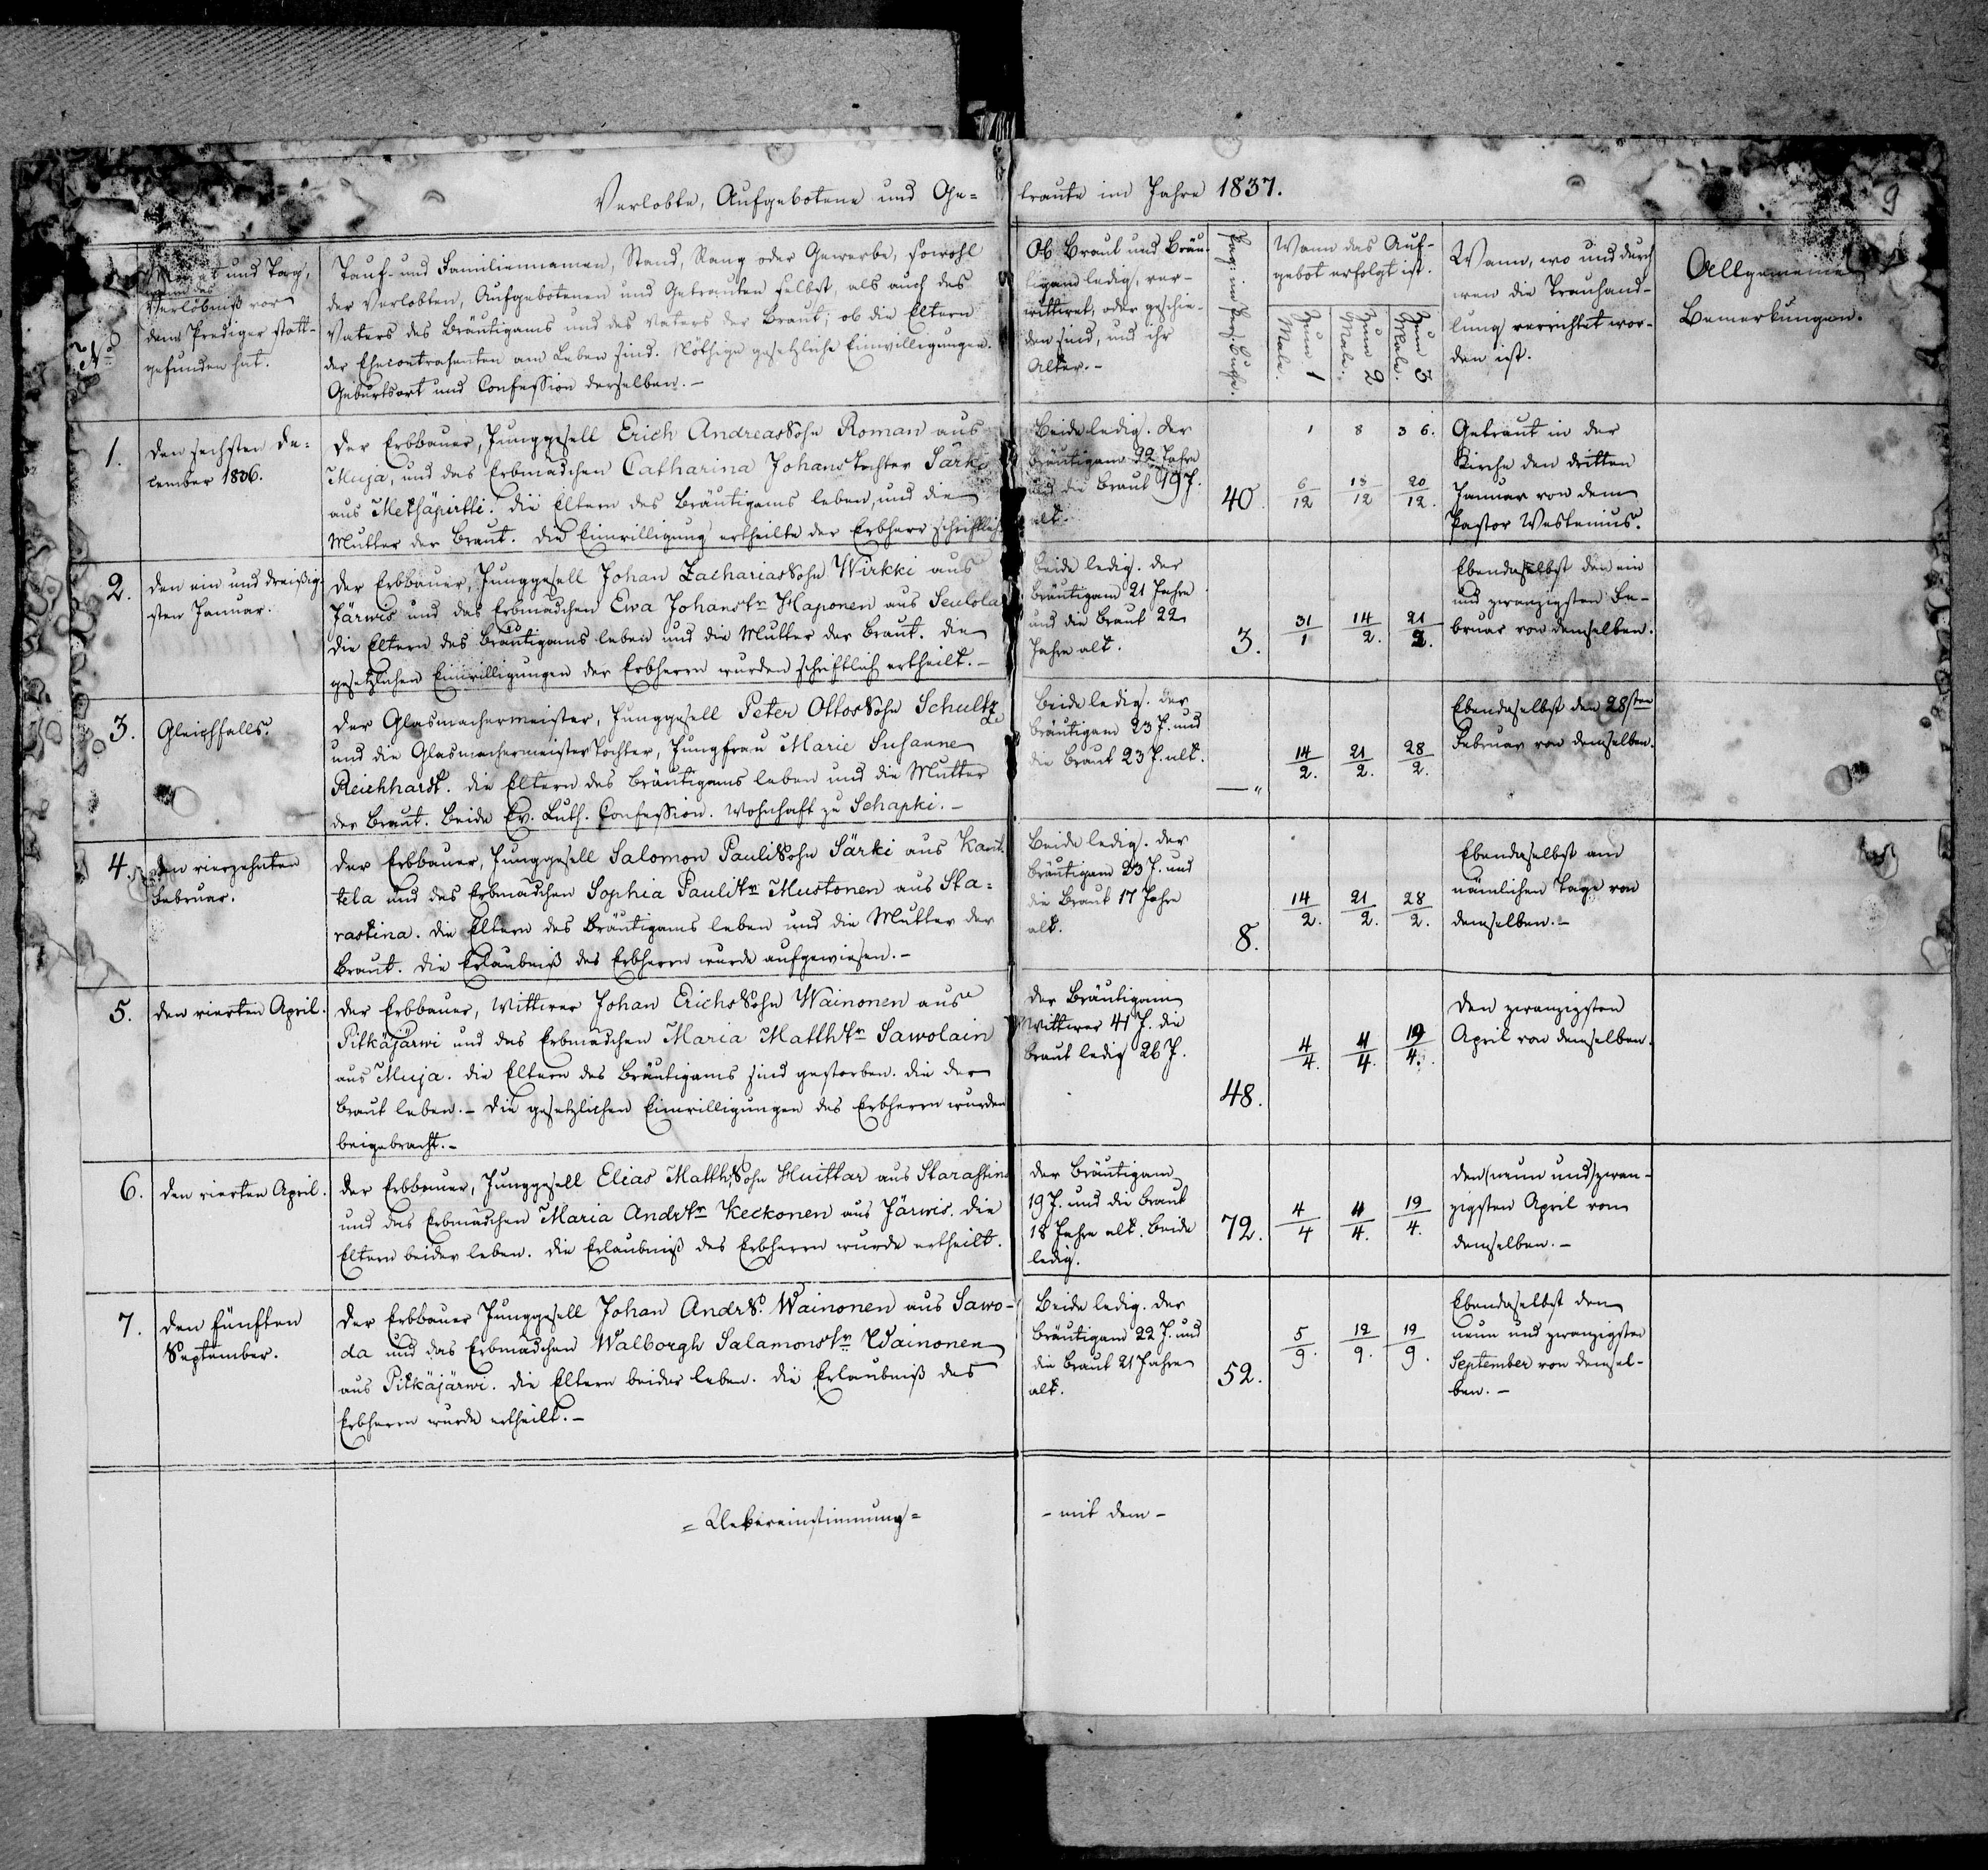 Verlobte, Aufgebotene und Ge= traute im Jahre 1837.
9
No
Monat und Tag,
wann das
Verlöbniß vor
dem Prediger statt-
gefunden hat.
Tauf- und Familiennamen, Stand, Rang oder Gewerbe, sowohl
der Verlobten, Aufgebotenen und Getrauten selbst, als auch des
Vaters des Bräutigams und des Vaters der Braut; ob die Eltern
der Ehecontrahenten am Leben sind. Nöthige gesetzliche Einwilligungen.
Geburtsort und Confession derselben.-
Ob Braut und Bräu-
tigam ledig, ver-
wittwet, oder geschie-
den sind, und ihr
Alter.-
Pag: im Pers. Buche.
Wann das Auf-
gebot erfolgt ist.
Zum 1 Male.
Zum 2 Male.
Zum 3 Male.
Wann, wo und durch
wen die Trauhand-
lung verrichtet wor-
den ist.
Allgemeine
Bemerkungen.
1.
Den sechsten De-
cember 1836.
Der Erbbauer, Junggesell Erich Andreas Sohn Roman aus
Muja, und das Erbmädchen Catharina Johans Tochter Särki
aus Metsäpirtti. Die Eltern des Bräutigams leben, und die
Mutter der Braut. Die Einwilligung ertheilte der Erbherr schriftlich
Beide ledig. Der
Bräutigam 22 Jahre
und die Braut 19 J.
alt.
40.
1 8 3 6.
6/12
13/12
20/12.
Getraut in der
Kirche den dritten
Januar von dem
Pastor Westenius.
2.
Den ein und dreißig-
sten Januar.
Der Erbbauer, Junggesell Johan Zacharias Sohn Wirkki aus
Järwis und das Erbmädchen Ewa Johanstr Haponen aus Seulola
Die Eltern des Bräutigams leben und die Mutter der Braut. Die
gesetzlichen Einwilligungen der Erbherrn wurden schriftlich ertheilt.-
Beide ledig. Der
Bräutigam 21 Jahre
und die Braut 22
Jahre alt.
3.
31/1
14/2.
21/2.
Ebendaselbst den ein
und zwanzigsten Fe-
bruar von demselben.
3.
Gleichfalls.
Der Glasmachermeister, Junggesell Peter Ottos Sohn Schultz
und die Glasmachermeister Tochter, Jungfrau Marie Susanne
Reichhardt. Die Eltern des Bräutigams leben und die Mutter
der Braut. Beide Ev. Luth. Confession. Wohnhaft zu Schapki.-
Beide ledig. Der
Bräutigam 23 J. und
die Braut 23 J. alt.
—"
14/2.
21/2.
28/2.
Ebendaselbst den 28sten
Februar von demselben.
4.
Den vierzehnten
Februar.
Der Erbbauer, Junggesell Salomon Pauli Sohn Särki aus Kant-
tela und das Erbmädchen Sophia Paulitr Mustonen aus Sta-
rastina. Die Eltern des Bräutigams leben und die Mutter der
Braut. Die Erlaubniß des Erbherrn wurde aufgewiesen.-
Beide ledig. Der
Bräutigam 23 J. und
die Braut 17 Jahre
alt.
8.
14/2.
21/2.
28/2.
Ebendaselbst am
nämlichen Tage von
demselben.-
5.
Den vierten April.
Der Erbbauer, Wittwer Johan Erichs Sohn Wainonen aus
Pitkäjärwi und das Erbmädchen Maria Matthtr Sawolain
aus Muja. Die Eltern des Bräutigams sind gestorben. Die der
Braut leben.- Die gesetzlichen Einwilligungen des Erbherrn wurden
beigebracht.-
Der Bräutigam
Wittwer 41 J. die
Braut ledig 26 J.
48.
4/4.
11/4.
19/4.
Den zwanzigsten
April von demselben.
6.
Den vierten April.
Der Erbbauer, Junggesell Elias Matth: Sohn Huittar aus Starastina
und das Erbmädchen Maria Andrstr Keckonen aus Järwis. Die
Eltern beider leben. Die Erlaubniß des Erbherrn wurde ertheilt.
Der Bräutigam
19 J. und die Braut
18 Jahre alt. Beide
ledig.
72.
4/4
11/4.
19/4.
Den (neun und) zwan-
zigsten April von
demselben.-
7.
Den fünften
September.
Der Erbbauer Junggesell Johan Andr S. Wainonen aus Sawo-
da und das Erbmädchen Walborgh Salamonstr Wainonen
aus Pitkäjärwi. Die Eltern beider leben. Die Erlaubniß des
Erbherrn wurde ertheilt.-
Beide ledig. Der
Bräutigam 22 J. und
die Braut 21 Jahre
alt.
52.
5/9.
12/9.
19/9.
Ebendaselbst den
neun und zwanzigsten
September von demsel-
ben.-
= Uebereinstimmung =
- mit dem -